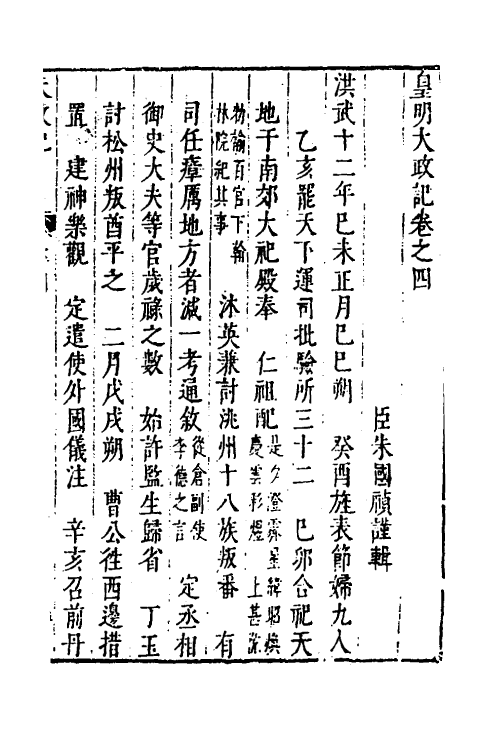 皇明大政記卷之四
臣朱國禎謹輯
洪武十二年巳未正月巳巳朔　癸酉旌表節婦九人
乙亥罷天下運司批驗所三十二　巳卯合祀天
地于南郊大祀殿奉　仁祖配是夕澄霽星緯昭煥慶雲彩燈　上甚
物諭百官下翰林院紀其事　沐英兼討洮州十八族叛番　有
司任瘴厲地方者減一考通敘從倉副使李德之言　定丞相
御史大夫等官歲祿之數　始許監生歸省　丁玉
討松州叛酋平之　二月戊戌朔　曹公徃西邊措
置　建神樂觀　定遣使外國儀注　辛亥召前丹